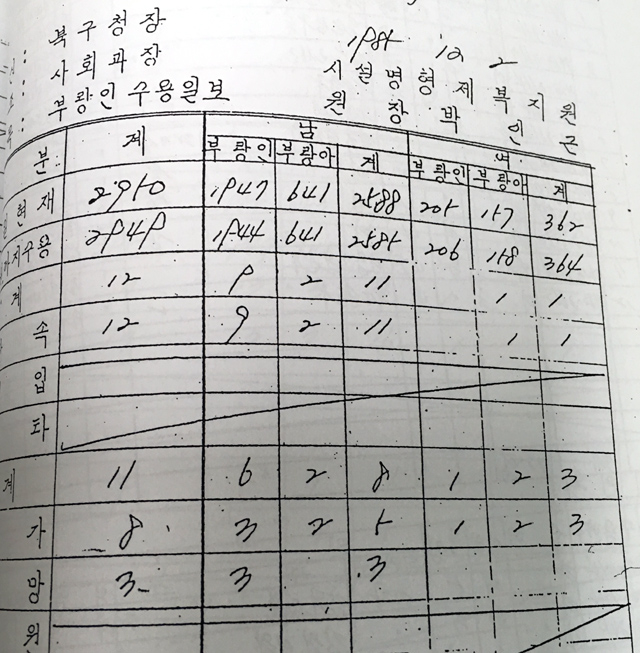 북구청장
사회과장
부랑인 수용일보
1985 12 2
시설명 형제복지원
원장 박인근
분 계 남 여
부랑인 부랑아 계 부랑인 부랑아 계
현재 2950 1947 641 2588 205 157 362
지수용 2949 1944 641 2585 206 158 364
계 12 9 2 11 1 1
속 12 9 2 11 1 1
입
타
계 11 6 2 8 1 2 3
가 8 3 2 5 1 2 3
망 3 3 3
원